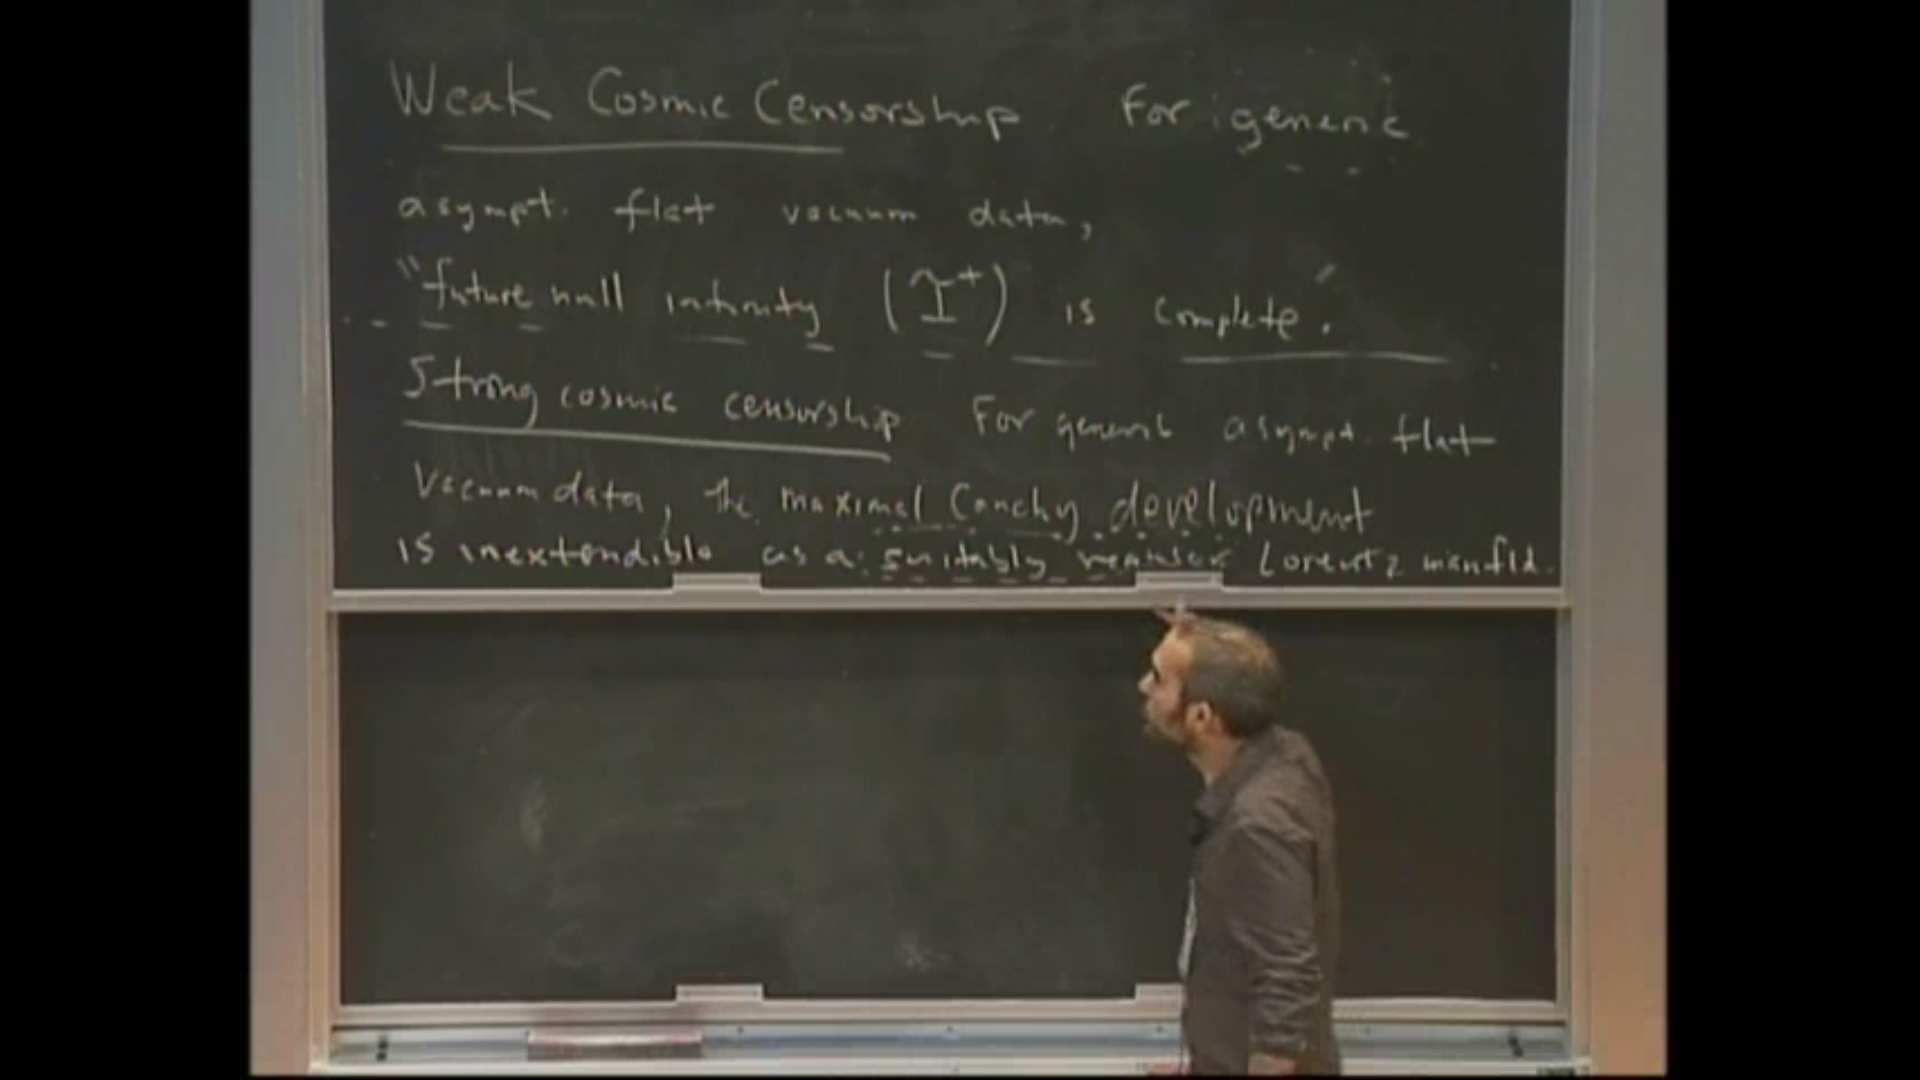 Weak Cosmic Censorship For generic
asympt. flat vacuum data,
"future null infinity (I⁺) is complete."
Strong cosmic censorship For generic asympt. flat
vacuum data, the maximal Cauchy development
is inextendible as a suitably regular Lorentz manfld.